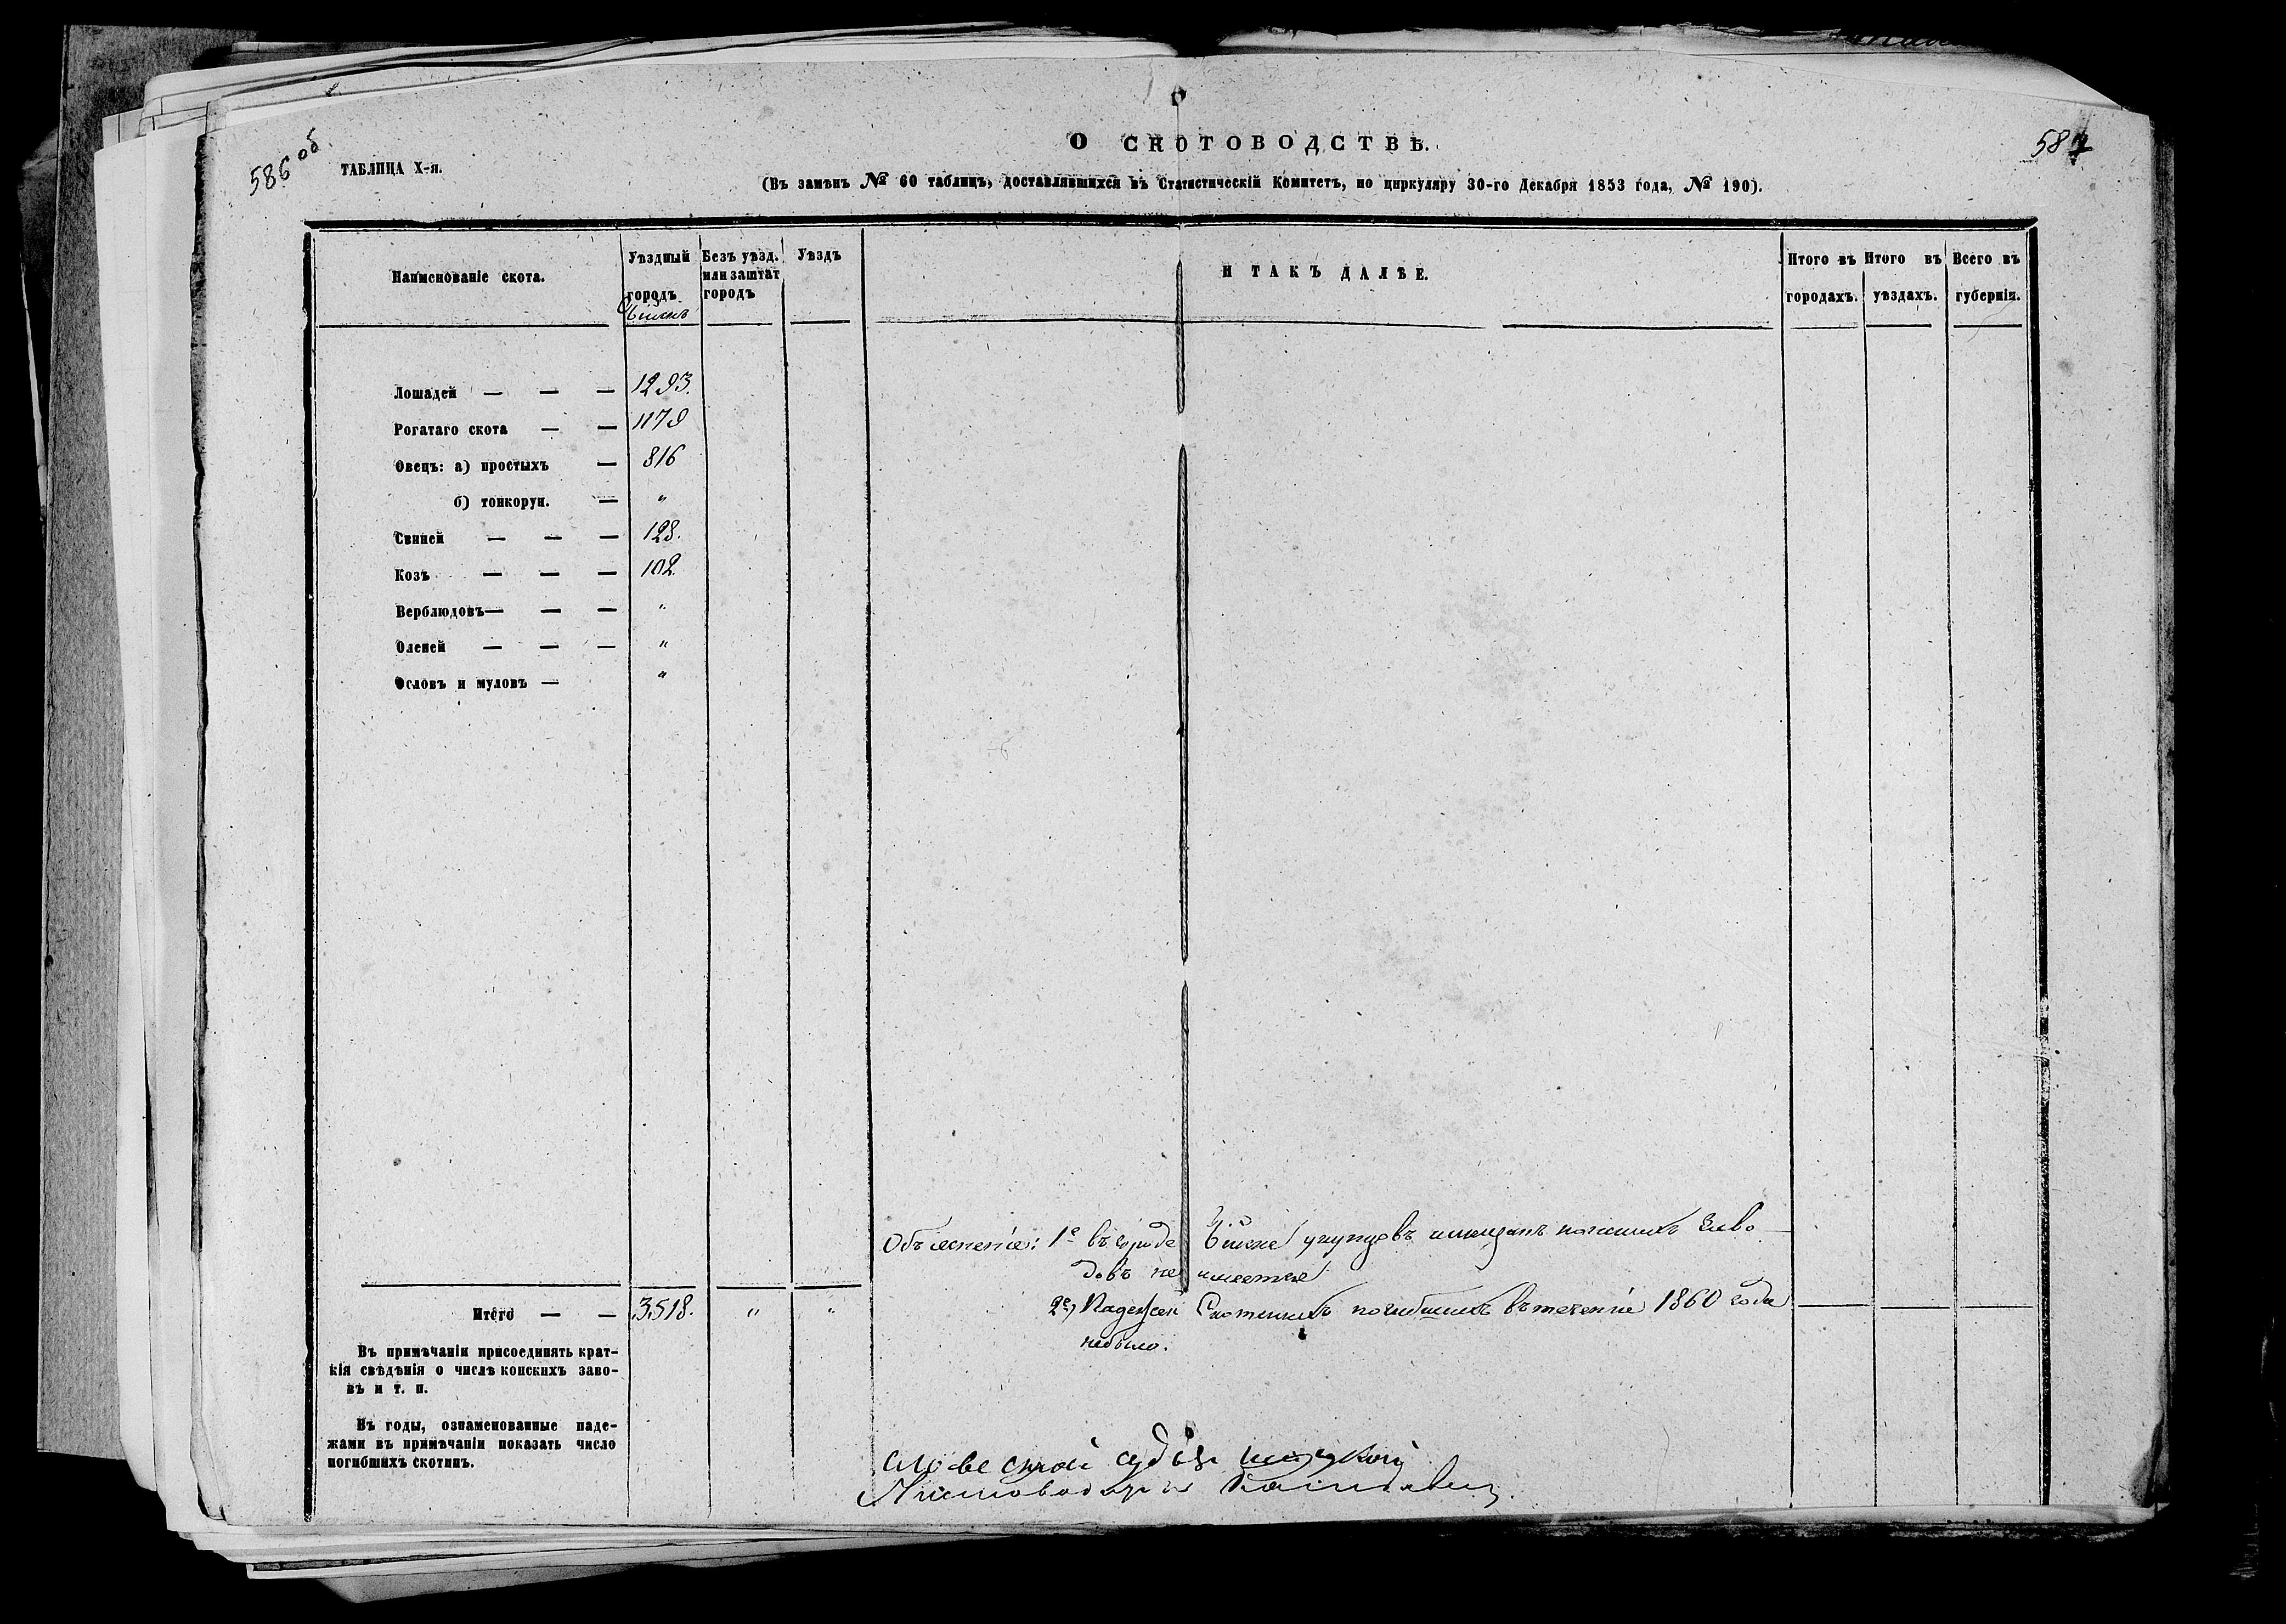 586 об
587
О СКОТОВОДСТВѢ.
ТАБЛИЦА X-я.
(Въ замѣнъ № 60 таблицъ, доставлявшихся въ Статистическій Комитетъ, по циркуляру 30-го Декабря 1853 года, № 190).
Наименованіе скота.
Уѣздный городъ
Бійскъ
Безъ уѣзд. или заштат городъ
Уѣздъ
И ТАКЪ ДАЛѢЕ.
Итого въ городахъ.
Итого въ уѣздахъ.
Всего въ губерніи.
Лошадей — — — 1293.
Рогатаго скота — — 1179
Овецъ: а) простыхъ — 816
б) тонкорун. — „
Свиней — — — 128.
Козъ — — — 102.
Верблюдовъ — — — „
Оленей — — — „
Ословъ и муловъ — „
Объясненіе: 1е въ городе Бійске у купцовъ и мещанъ конскихъ заво-
довъ не имеется
Итого — — 3518. „ „
2е) Падежей Скотскихъ погибшихъ въ теченіе 1860 года
небыло.
Въ примѣчаніи присоединять крат-
кія свѣдѣнія о числѣ конскихъ заво-
въ и т. п.
Въ годы, ознаменованные паде-
жами въ примѣчаніи показать число
погибшихъ скотин.
словесной судья